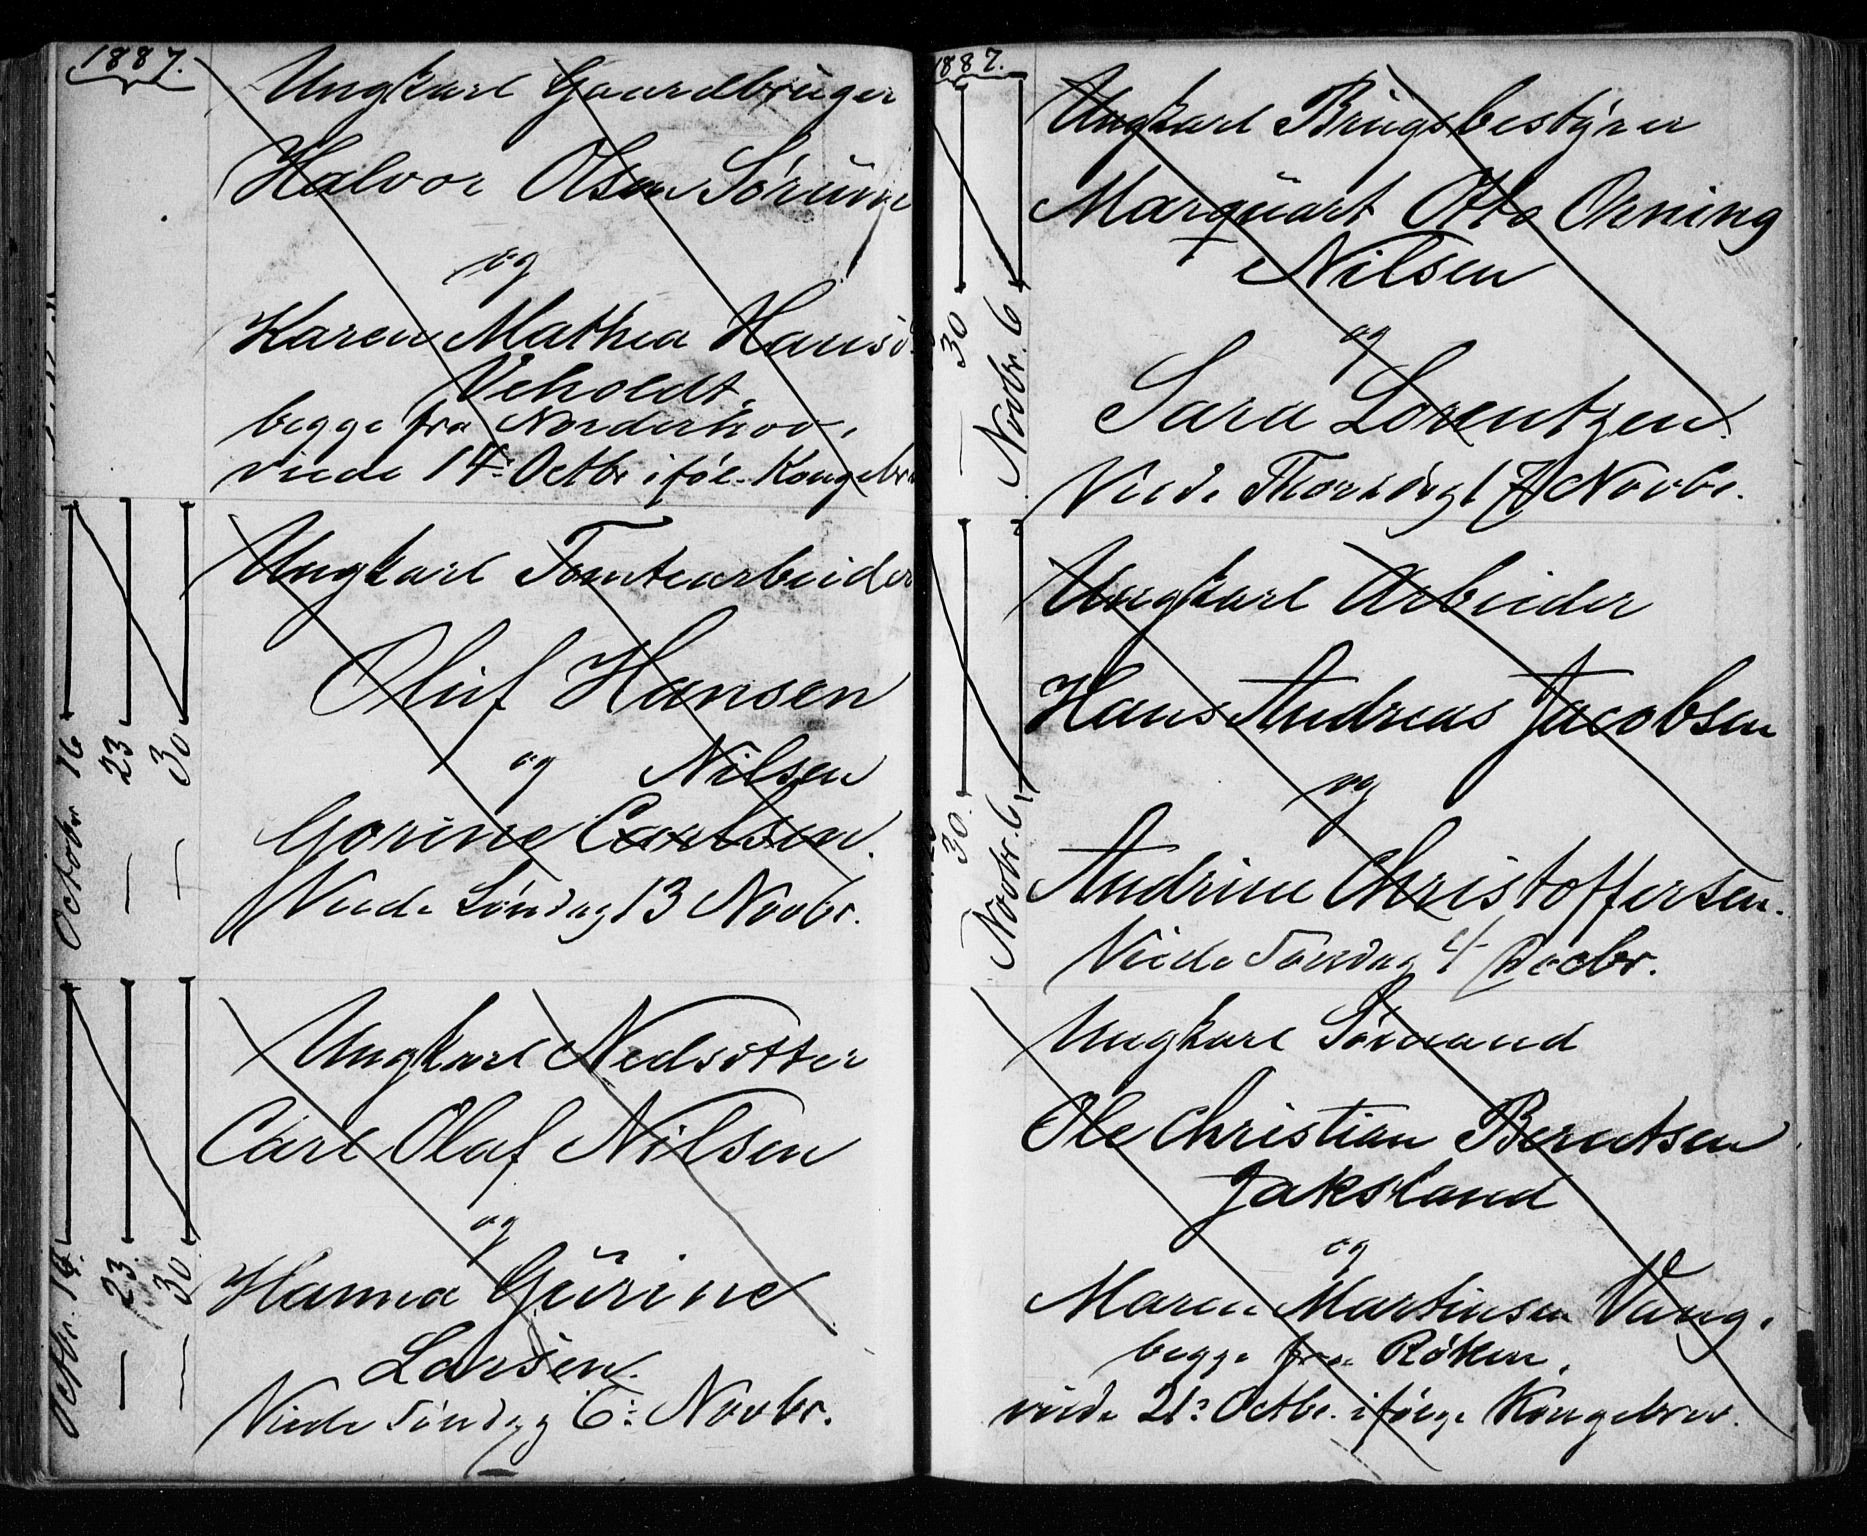 1887.
Ungkarl Gaardbruger
Halvor Olsen Sørum
og
Karen Mathea Hansd
Veholdt.
begge fra Norderhov.
viede 14: Octbr iføl. Kongebr
Octobr 16
— 23
— 30
Ungkarl Tomtearbeider
Oluf Hansen
og Nilsen
Gorine Carlsen.
Viede Søndag 13 Novbr.
Octbr. 16.
— 23.
— 30.
Ungkarl Nedsætter
Carl Olaf Nilsen
og
Hanna Gurine
Larsen.
Viede Søndag 6: Novbr.
1887.
— 30
Novbr. 6
Ungkarl Brugsbestyrer
Marquart Otto Orning
Nilsen
og
Sara Lorentzen.
Viede Thorsdag 17 Novbr.
30.
Novbr. 6
Ungkarl Arbeider
Hans Andreas Jacobsen
og
Andrine Christoffersen.
Viede Søndag 4 Decbr.
Ungkarl Sømand
Ole Christian Berntsen
Jaksland
og
Maren Martinsen Vang.
begge fra Røken.
viede 21: Octbr. ifølge Kongebrev.